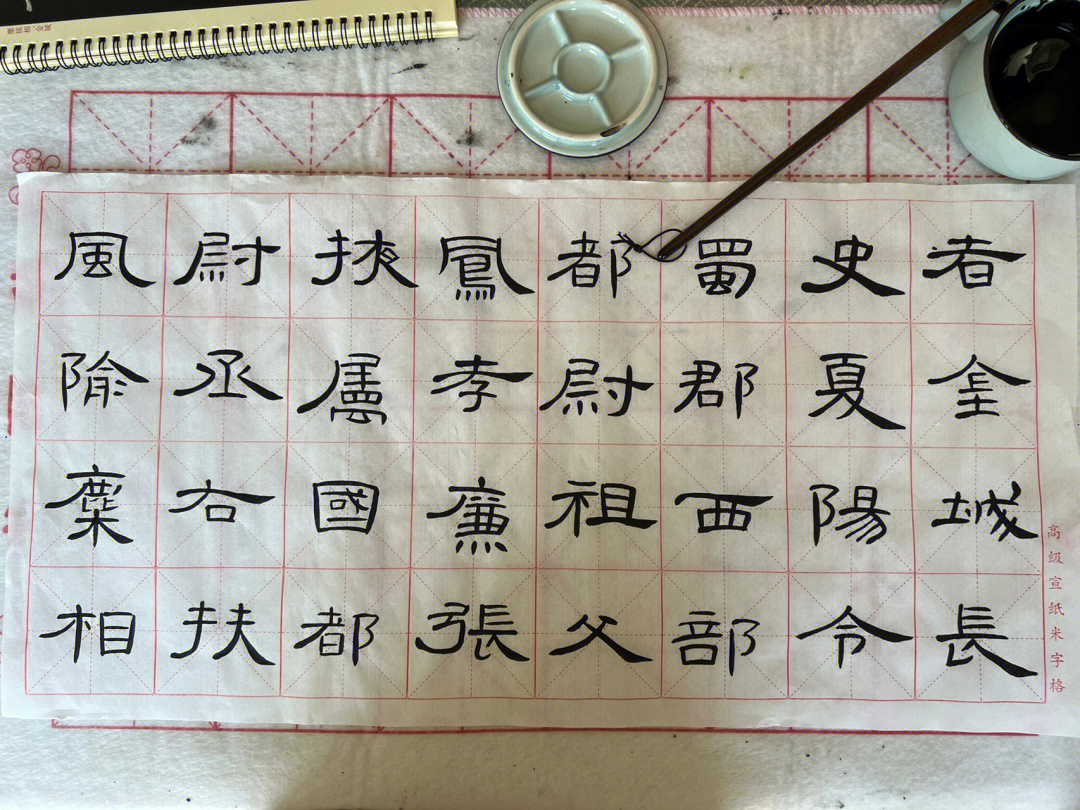 者金城長
史夏陽令
蜀郡西部
都尉祖父
鳳孝廉張
掖屬國都
尉丞右扶
風隃麋相
高级宣纸米字格